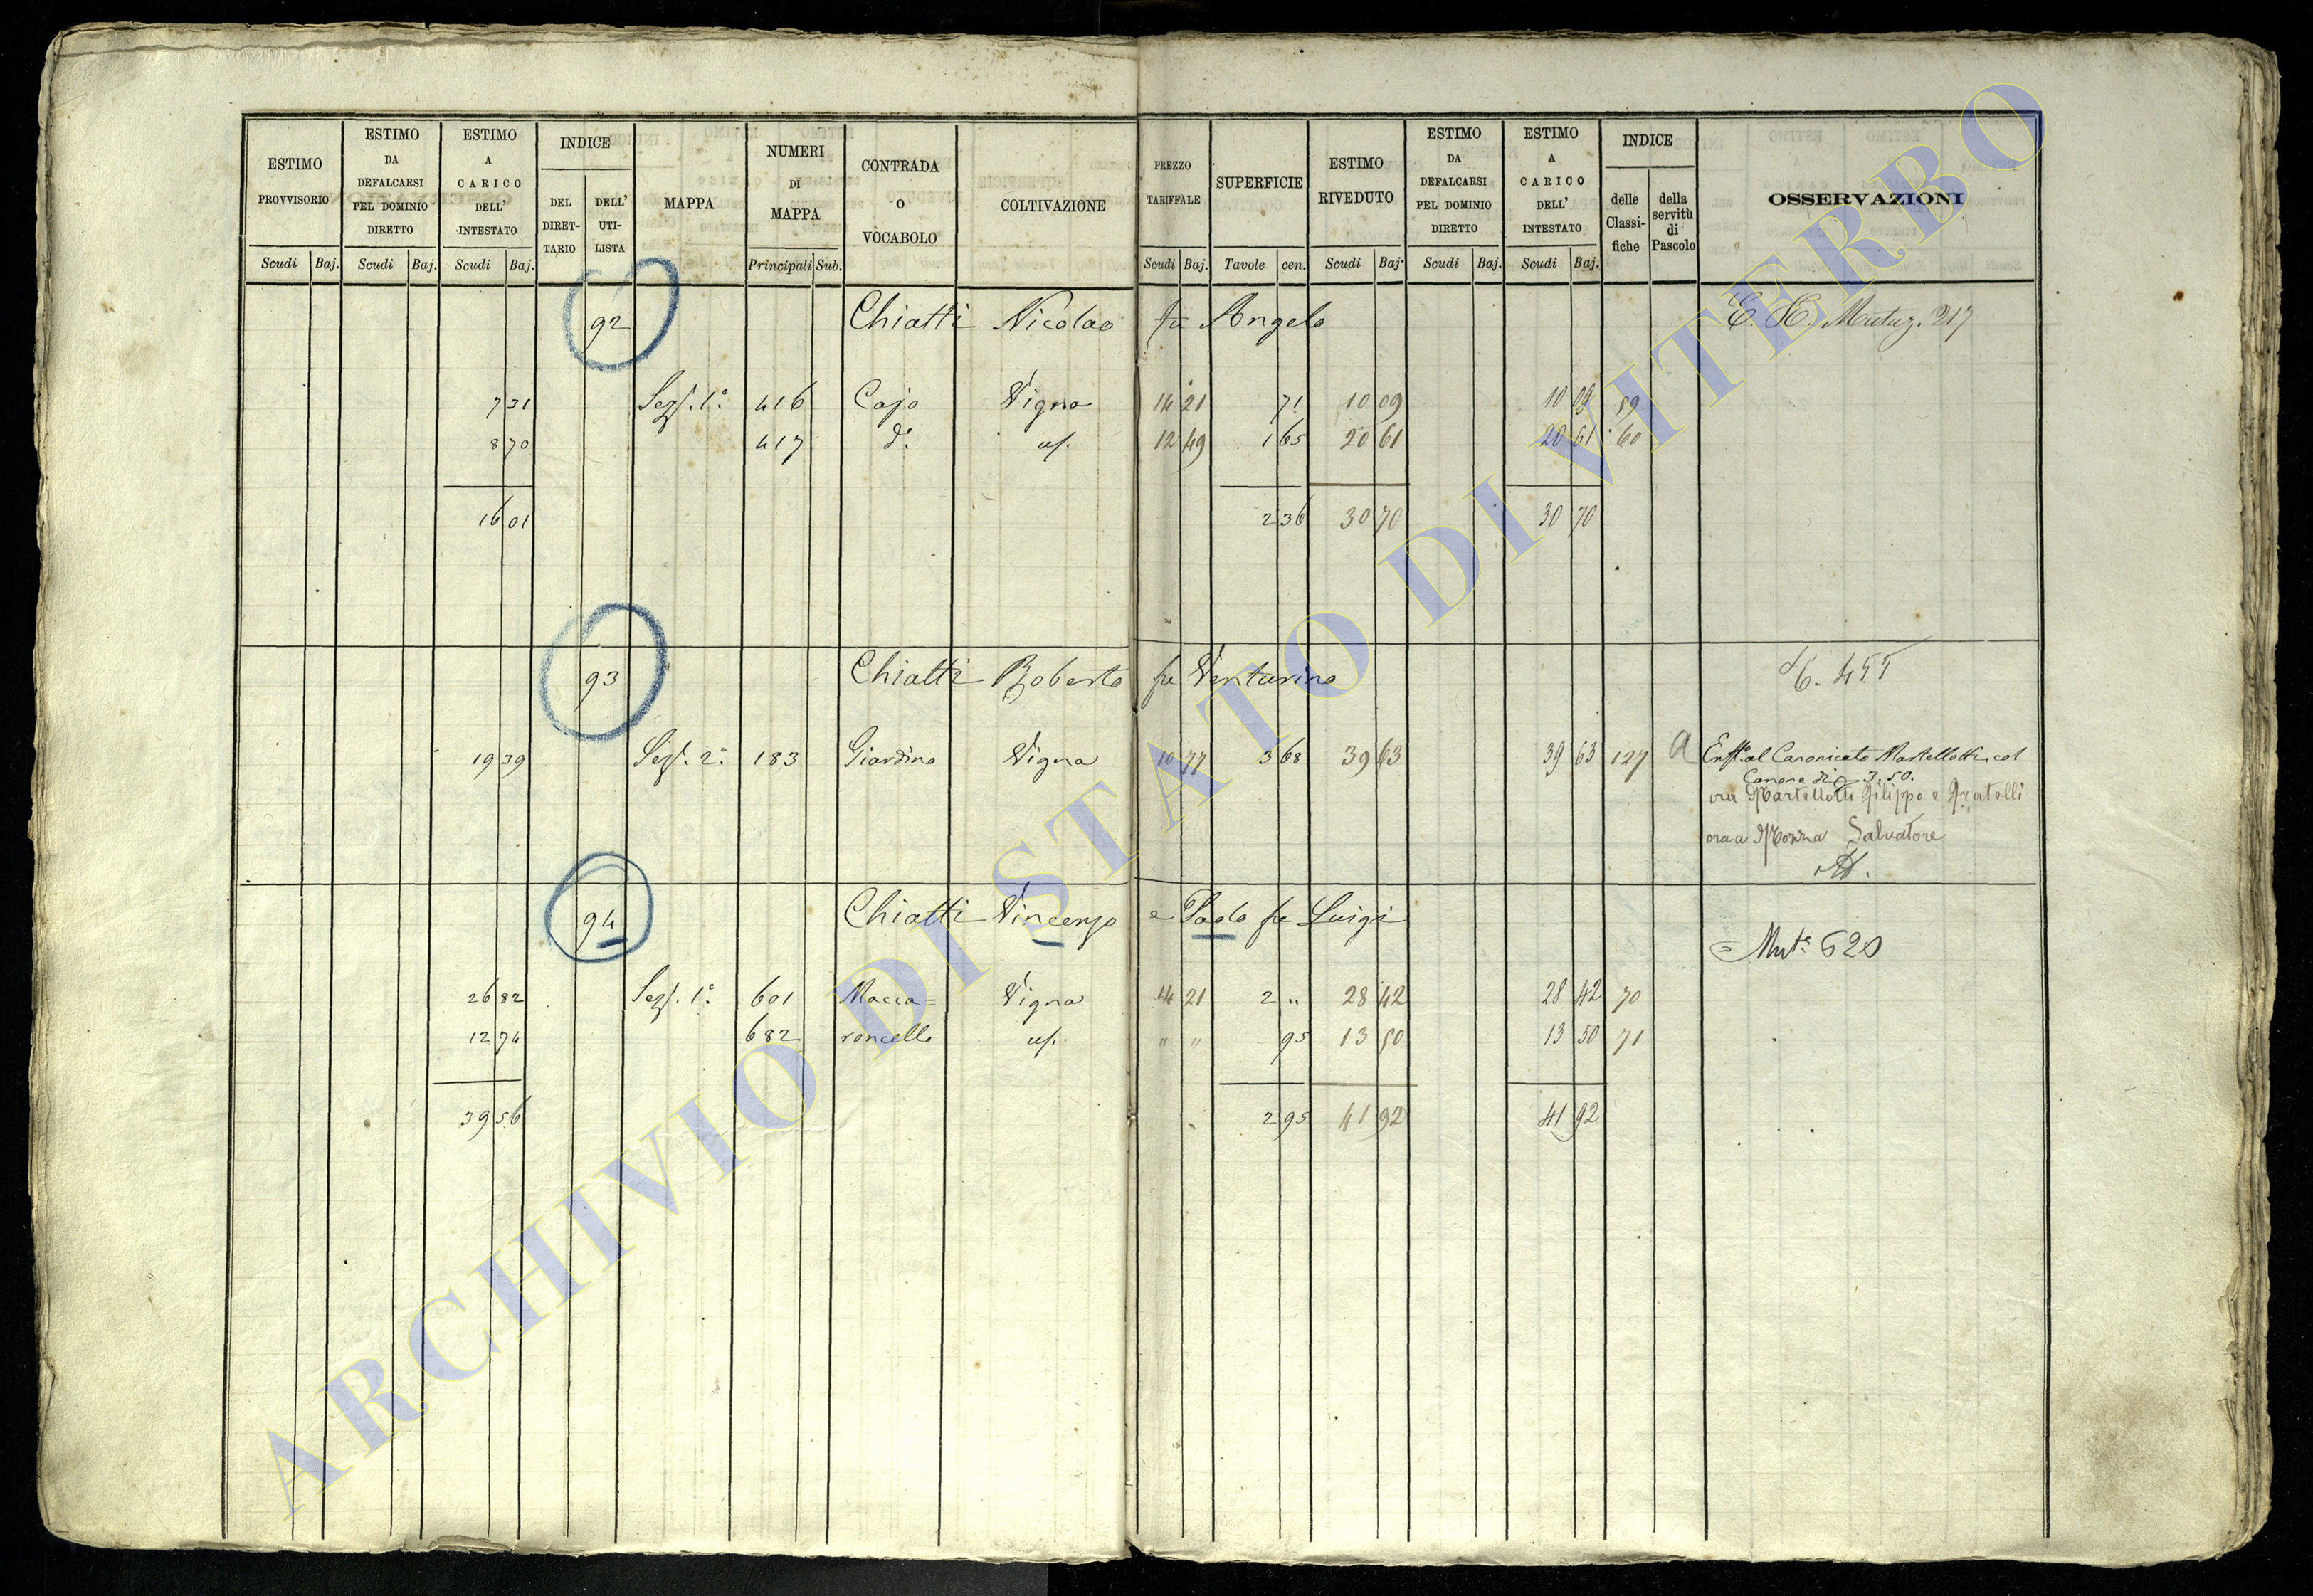 ESTIMO PROVVISORIO
ESTIMO DA DEFALCARSI PEL DOMINIO DIRETTO
ESTIMO A CARICO DELL' INTESTATO
INDICE
DEL DIRETTARIO
DELL' UTILISTA
MAPPA
NUMERI DI MAPPA
CONTRADA O VOCABOLO
COLTIVAZIONE
PREZZO TARIFFALE
SUPERFICIE
ESTIMO RIVEDUTO
ESTIMO DA DEFALCARSI PEL DOMINIO DIRETTO
ESTIMO A CARICO DELL' INTESTATO
INDICE
delle Classifiche
della servitù di Pascolo
OSSERVAZIONI
Scudi Baj. Scudi Baj. Scudi Baj. Principali Sub. Scudi Baj. Tavole cen. Scudi Baj. Scudi Baj. Scudi Baj.
92 Chiatti Nicolao fu Angelo
7 31 Sez. 1a 416 Cajo Vigna 14 21 71 10 09 10 09 59
8 70 417 do 12 49 1 65 20 61 20 61 60
16 01 2 36 30 70 30 70
93 Chiatti Roberto fu Venturino
19 39 Sez. 2a 183 Giardino Vigna 10 77 3 68 39 63 39 63 127 a Enft. al Canonicato Martellotti col
Canone di 3.50.
ora Martellotti Filippo e Fratelli
ora a Monna Salvatore
94 Chiatti Vincenzo e Paolo fu Luigi
= Mut. 620
26 82 Sez. 1a 601 Macca= Vigna 14 21 2 " 28 42 28 42 70
12 74 682 roncello " " 95 13 50 13 50 71
39 56 2 95 41 92 41 92
ARCHIVIO DI STATO DI VITERBO